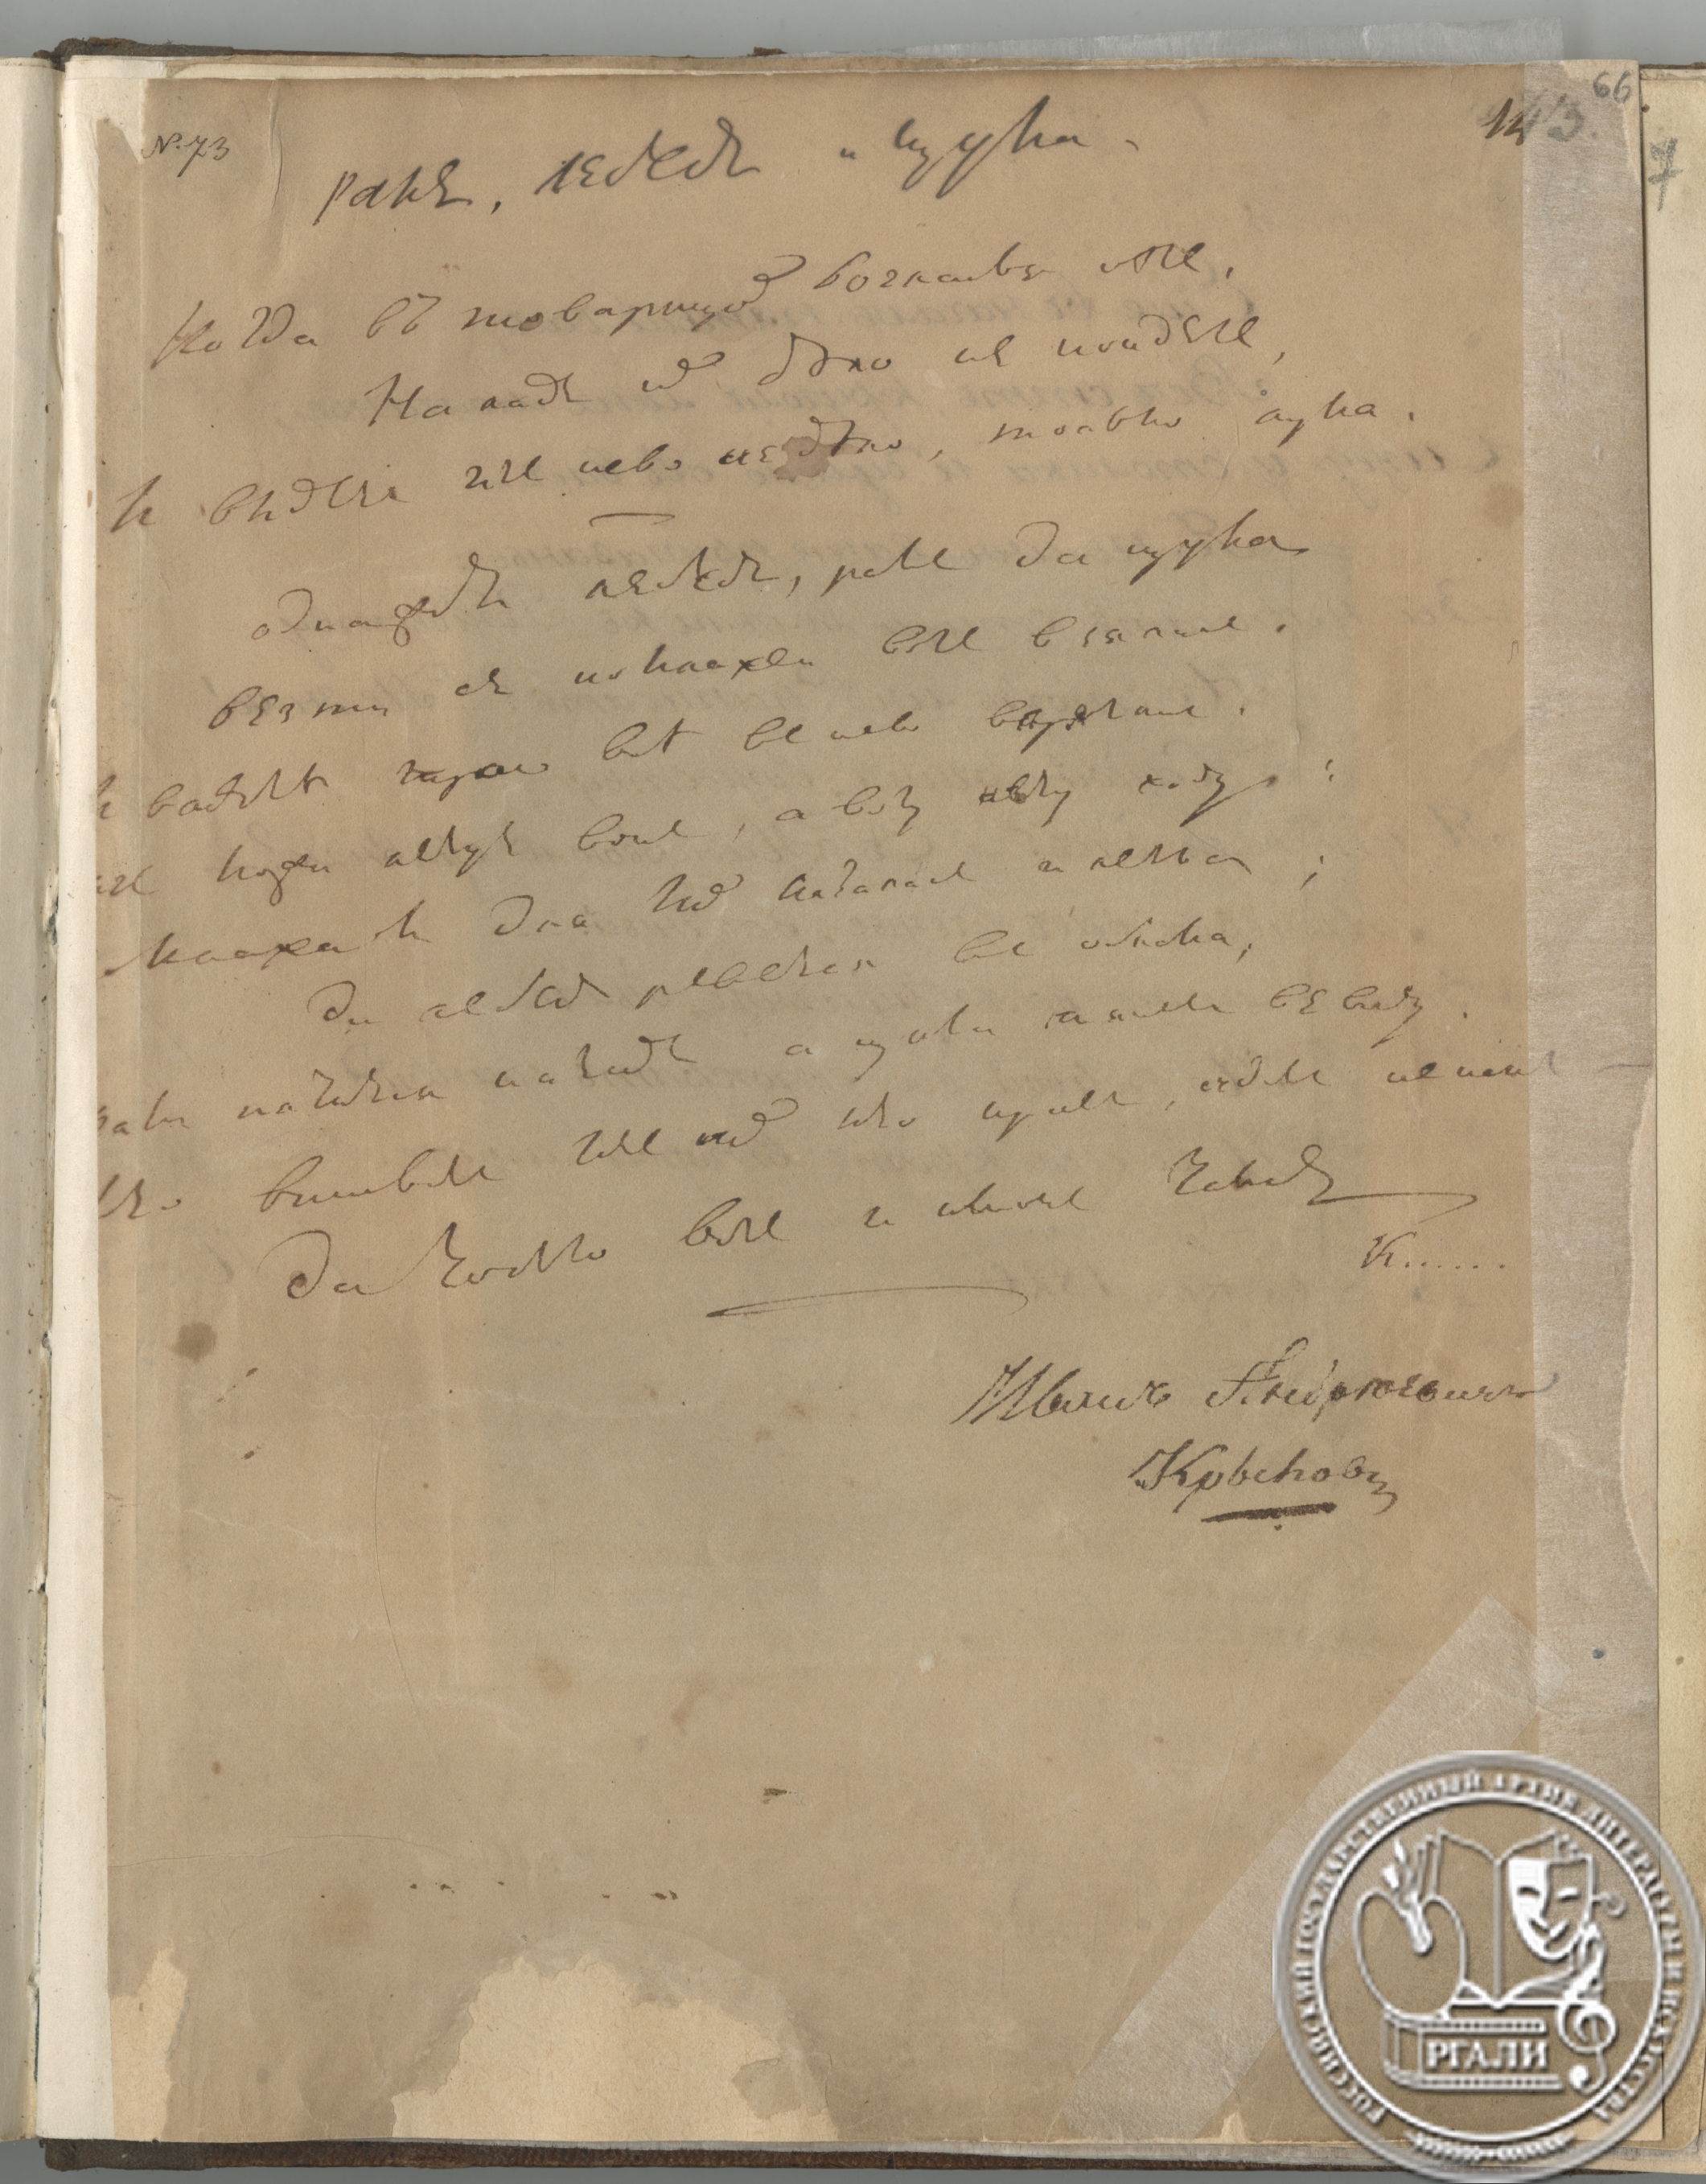 66
№ 73
13
7
ракъ, лебедь и щука.
Когда въ товарищахъ согласья нѣтъ,
На ладъ ихъ дѣло не пойдетъ,
И выдетъ изъ нево не дѣло, только мука.
однажды лебедь, ракъ да щука
везти съ поклажей возъ взялись.
и вместѣ трое всѣ въ нево впряглись.
изъ кожи лезутъ вонъ, а возу нѣту ходу:
поклажа бы для нихъ казалась и легка;
Да лебедь рвется въ облака,
ракъ пятится назадъ а щука тянетъ въ воду.
кто виноватъ изъ нихъ кто правъ, судить не намъ
Да только возъ и
К......
Иванъ Андреевичъ
Крыловъ
РОССИЙСКИЙ ГОСУДАРСТВЕННЫЙ АРХИВ ЛИТЕРАТУРЫ И ИСКУССТВА
РГАЛИ